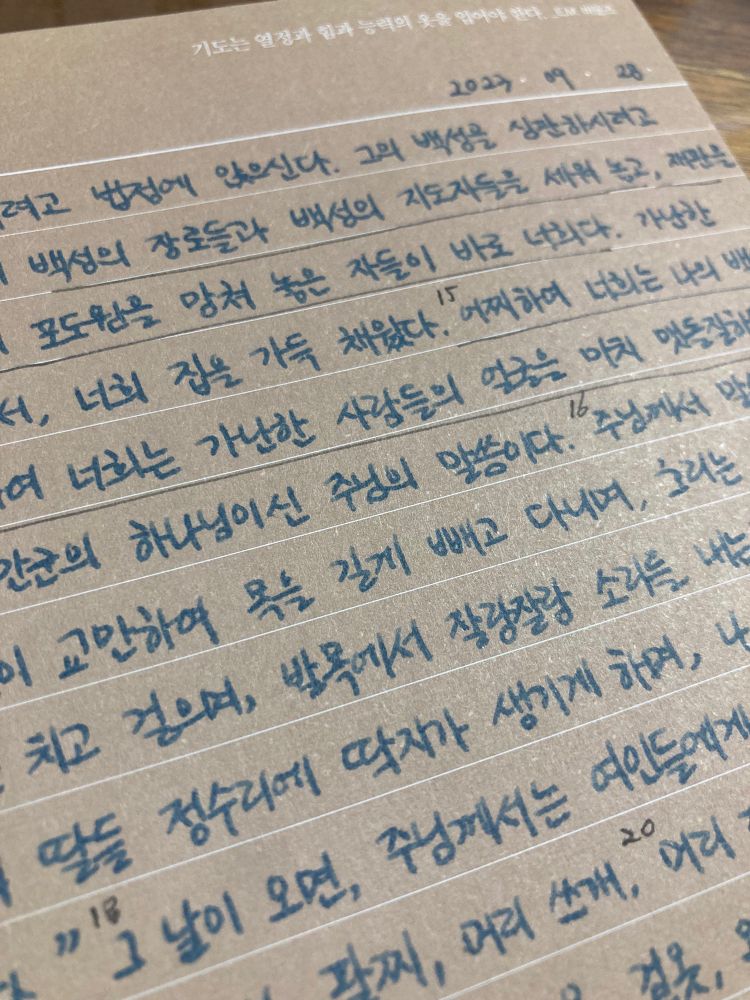 기도는 열정과 힘과 능력의 옷을 입어야 한다. _E.M 바운즈
2023 . 09 . 28 .
려고 법정에 앉으신다. 그의 백성을 심판하시려고
백성의 장로들과 백성의 지도자들을 세워 놓고, 재판을
포도원을 망쳐 놓은 자들이 바로 너희다. 가난한
서, 너희 집을 가득 채웠다. 15 어찌하여 너희는 나의 백
여 너희는 가난한 사람들의 얼굴을 마치 맷돌질하
만군의 하나님이신 주님의 말씀이다. 16 주님께서 말
이 교만하여 목을 길게 빼고 다니며, 호리는
치고 걸으며, 발목에서 잘랑잘랑 소리를 내는
딸들 정수리에 딱지가 생기게 하며,
” 18 그 날이 오면, 주님께서는 여인들에게
팔찌, 머리 쓰개, 20 머리
겉옷,